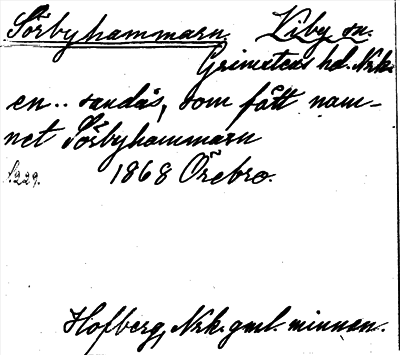 Sörbyhammarn. Viby sn.
Grimstens hd. Nrk.
en.. sandås, som fått nam-
net Sörbyhammarn
s. 229. 1868 Örebro.
Hofberg, Nrk. gml. minnen.